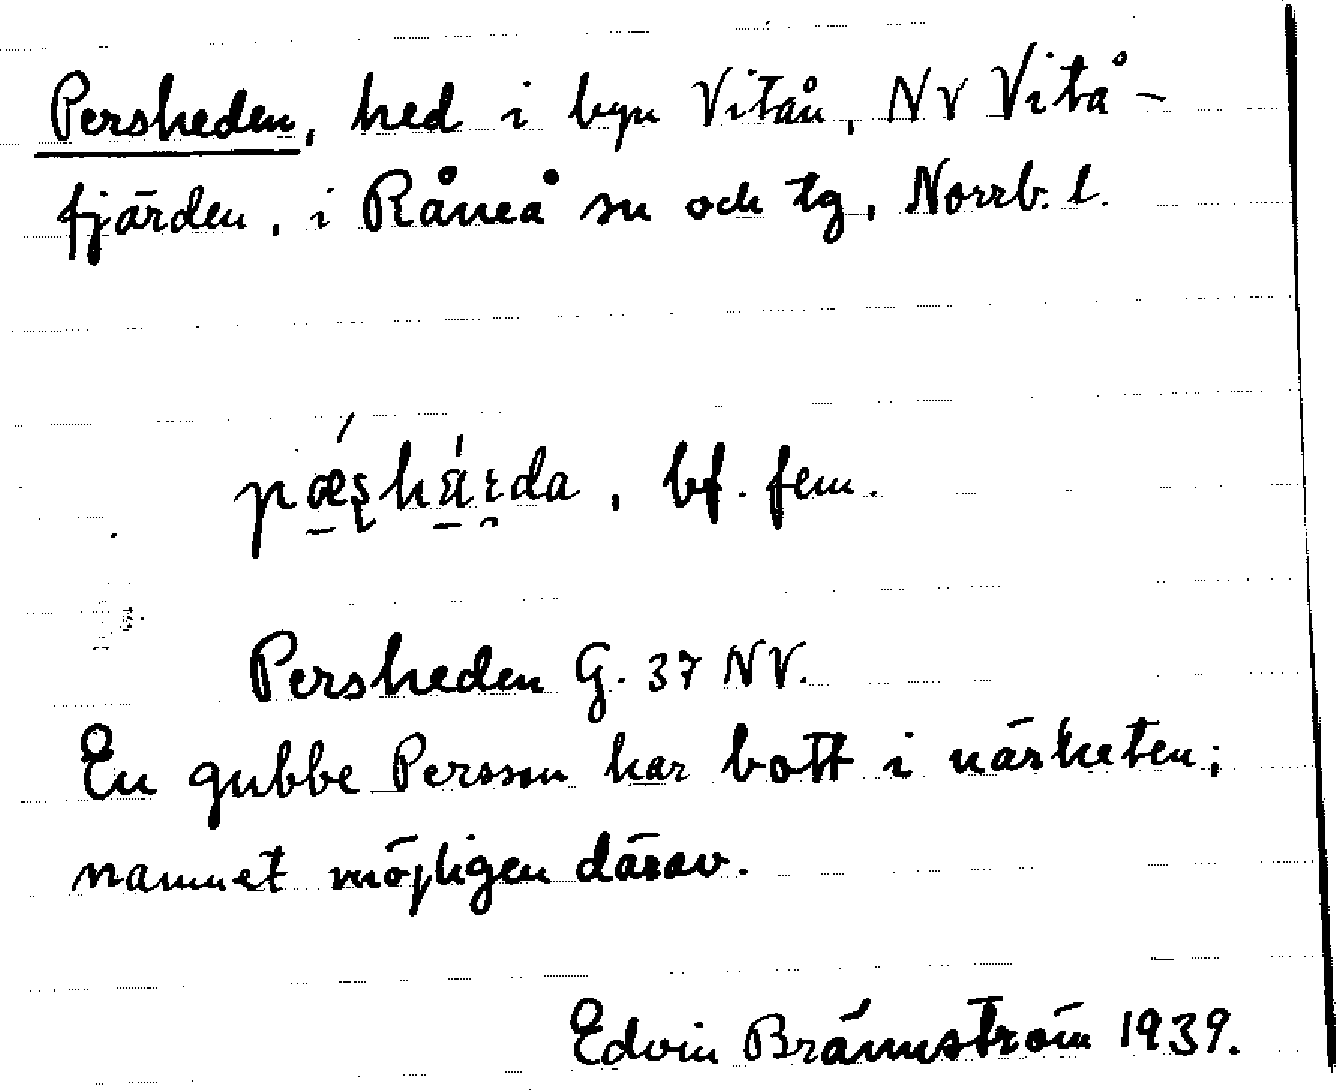 Persheden, hed i byn Vitån, NV Vitå-
fjärden, i Råneå sn och tg, Norrb. l.
pǽʂhá̤ɽda, bf. fem.
Persheden G. 37 NV.
En gubbe Persson har bott i närheten;
namnet möjligen därav.
Edvin Brännström 1939.